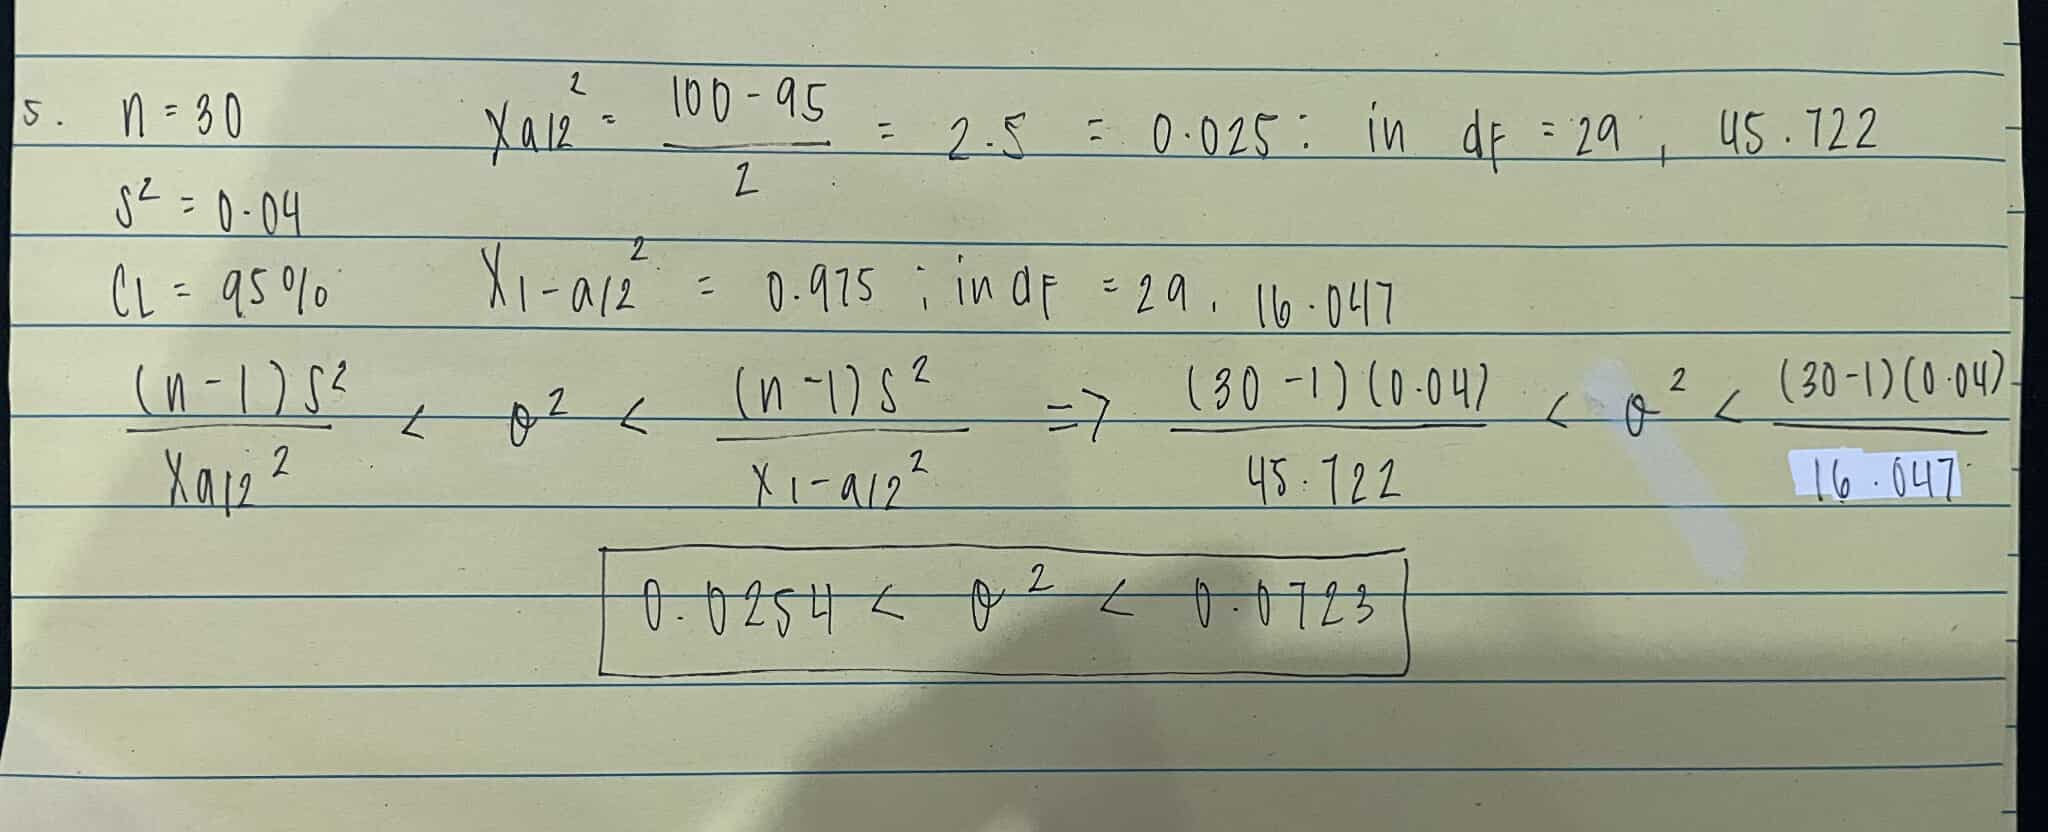 5. n = 30 Xa/2² = 100 - 95 / 2 = 2.5 = 0.025: in df = 29, 45.722
s² = 0.04
CL = 95% X1-a/2² = 0.975; in df = 29, 16.047
(n-1)s² / Xa/2² < σ² < (n-1)s² / X1-a/2² => (30-1)(0.04) / 45.722 < σ² < (30-1)(0.04) / 16.047
0.0254 < σ² < 0.0723